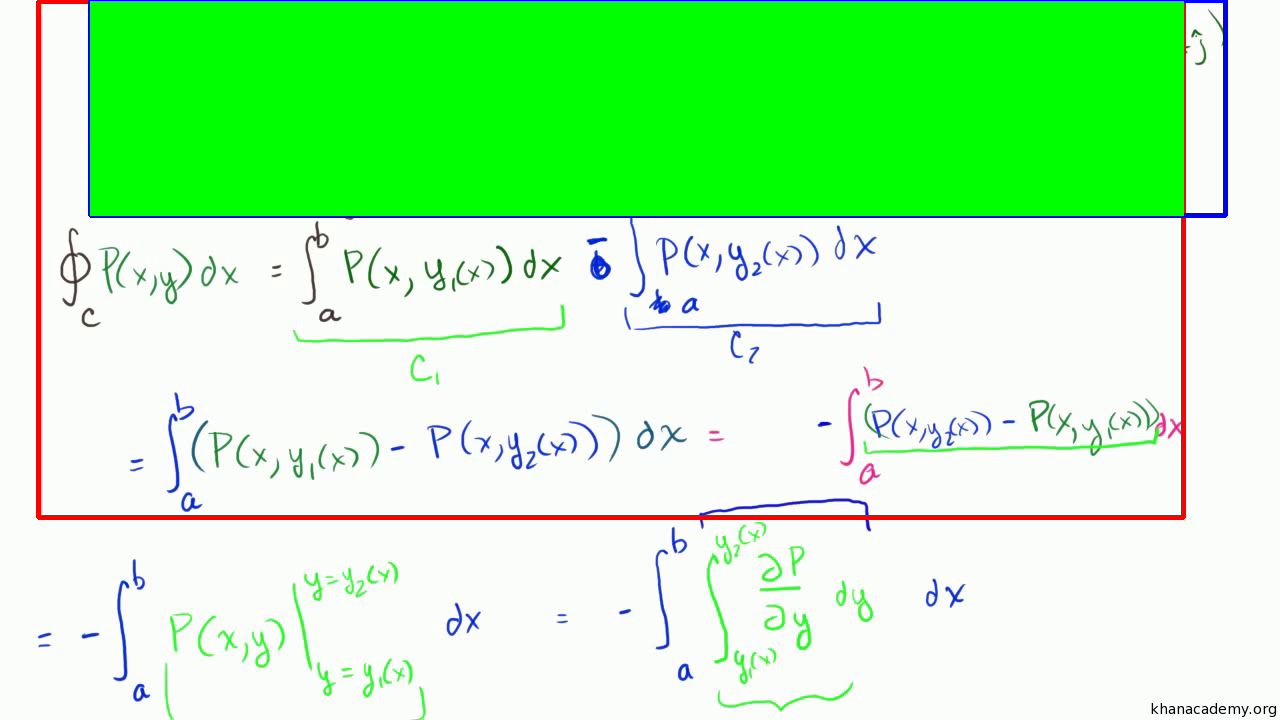 ĵ)
∮_C P(x,y) dx = ∫_a^b P(x, y₁(x)) dx - ∫_a P(x, y₂(x)) dx
C₁ C₂
= ∫_a^b (P(x, y₁(x)) - P(x, y₂(x))) dx = - ∫_a^b (P(x, y₂(x)) - P(x, y₁(x))) dx
= - ∫_a^b P(x,y) |_{y = y₁(x)}^{y = y₂(x)} dx = - ∫_a^b ∫_{y₁(x)}^{y₂(x)} ∂P/∂y dy dx
khanacademy.org